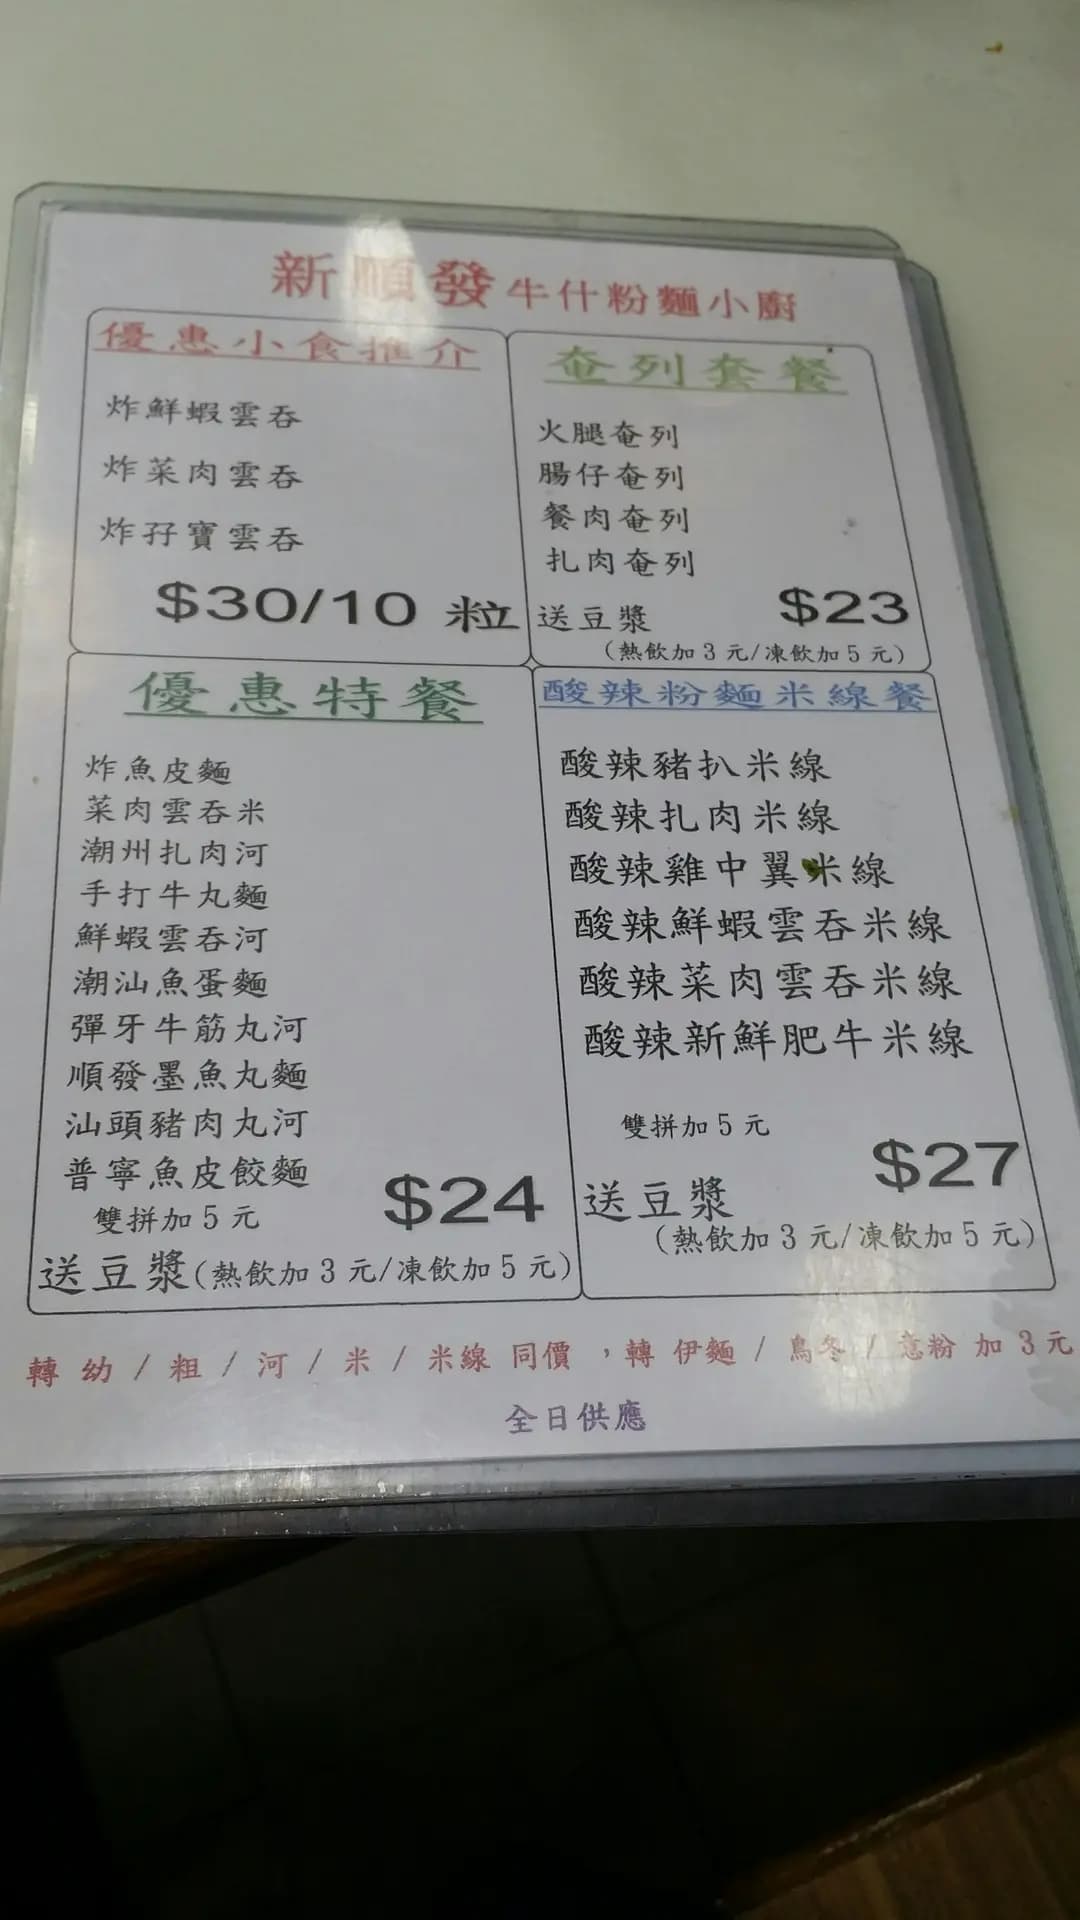 新順發牛什粉麵小廚
優惠小食推介
炸鮮蝦雲吞
炸菜肉雲吞
炸孖寶雲吞
$30/10 粒
奄列套餐
火腿奄列
腸仔奄列
餐肉奄列
扎肉奄列
送豆漿 $23
(熱飲加3元/凍飲加5元)
優惠特餐
炸魚皮麵
菜肉雲吞米
潮州扎肉河
手打牛丸麵
鮮蝦雲吞河
潮汕魚蛋麵
彈牙牛筋丸河
順發墨魚丸麵
汕頭豬肉丸河
普寧魚皮餃麵
雙拼加5元 $24
送豆漿(熱飲加3元/凍飲加5元)
酸辣粉麵米線餐
酸辣豬扒米線
酸辣扎肉米線
酸辣雞中翼米線
酸辣鮮蝦雲吞米線
酸辣菜肉雲吞米線
酸辣新鮮肥牛米線
雙拼加5元
送豆漿 $27
(熱飲加3元/凍飲加5元)
轉 幼 / 粗 / 河 / 米 / 米線 同價 ，轉 伊麵 / 烏冬 / 意粉 加 3 元
全日供應